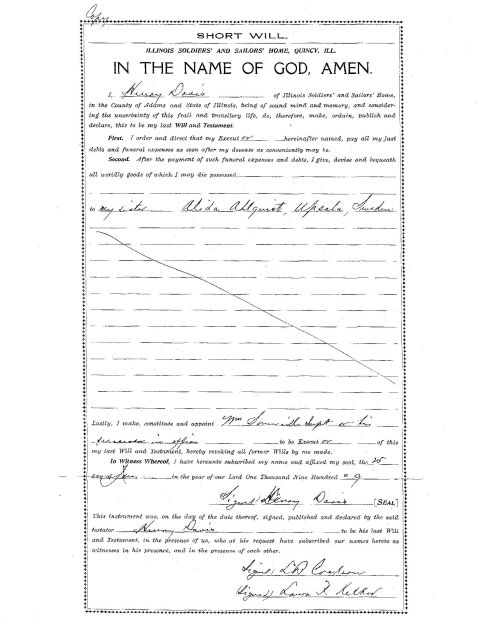 Copy
SHORT WILL.
ILLINOIS SOLDIERS' AND SAILORS' HOME, QUINCY, ILL.
IN THE NAME OF GOD, AMEN.
I, Henry Davis of Illinois Soldiers' and Sailors' Home,
in the County of Adams and State of Illinois, being of sound mind and memory, and consider-
ing the uncertainty of this frail and transitory life, do, therefore, make, ordain, publish and
declare, this to be my last Will and Testament.
First. I order and direct that my Execut or hereinafter named, pay all my just
debts and funeral expenses as soon after my decease as conveniently may be.
Second. After the payment of such funeral expenses and debts, I give, devise and bequeath
all worldly goods of which I may die possessed.
to my sister Alida Ahlquist, Upsala, Sweden
Lastly, I make, constitute and appoint Wm Somerville Supt or his
in office to be Execut or of this
my last Will and Testament, hereby revoking all former Wills by me made.
In Witness Whereof, I have hereunto subscribed my name and affixed my seal, the
day of in the year of our Lord One Thousand Nine Hundred x 9
Signed/ Henry Davis [SEAL]
This instrument was, on the day of the date thereof, signed, published and declared by the said
testator Henry Davis to be his last Will
and Testament, in the presence of us, who at his request have subscribed our names hereto as
witnesses in his presence, and in the presence of each other.
Signed/
Signed/ Laura